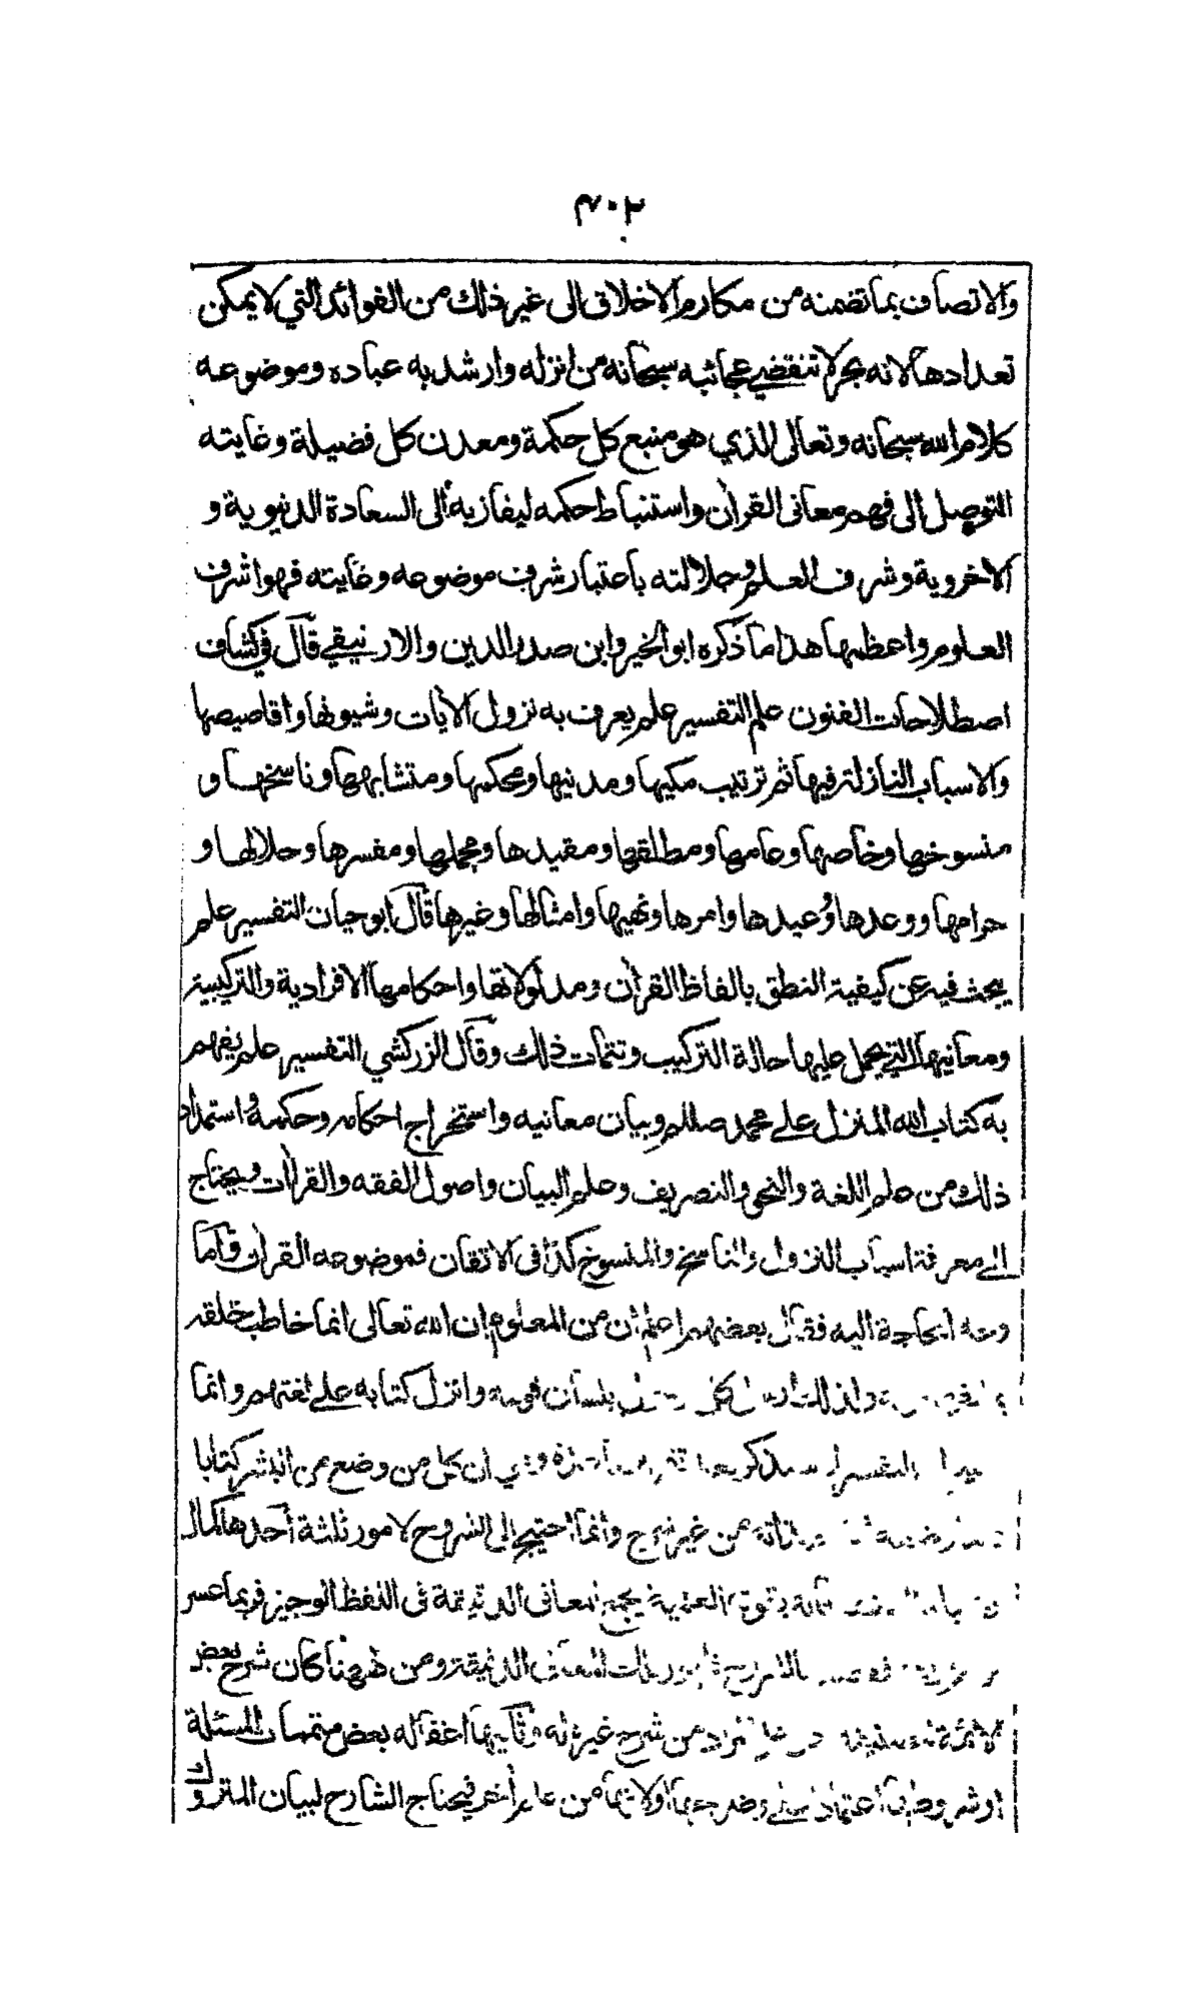 ٣٠٢
والاتصاف بما تضمنه من مكارم الاخلاق الى غير ذلك من الفوائد التي لا يمكن
تعدادها لانه بحر لا تنقضي عجائبه سبحانه من انزله وارشد به عباده وموضوعه
كلام الله سبحانه وتعالى الذي هو منبع كل حكمة ومعدن كل فضيلة وغايته
التوصل الى فهم معانى القرآن واستنباط حكمه ليفاز به الى السعادة الدنيوية و
الاخروية وشرف العلم وجلالته باعتبار شرف موضوعه وغايته فهو اشرف
العلوم واعظمها هذا ما ذكره ابو الخير وابن صدر الدين والارنيقي قال في كشاف
اصطلاحات الفنون علم التفسير علم يعرف به نزول الآيات وشيونها واقاصيصها
والاسباب النازلة فيها ثم ترتيب مكيها ومدنيها ومحكمها ومتشابهها وناسخها و
منسوخها وخاصها وعامها ومطلقها ومقيدها ومجملها ومفسرها وحلالها و
حرامها ووعدها ووعيدها وامرها ونهيها وامثالها وغيرها قال ابو حيان التفسير علم
يبحث فيه عن كيفية النطق بالفاظ القرآن ومدلولاتها واحكامها الافرادية والتركيبية
ومعانيها التي يحمل عليها حالة التركيب وتتمات ذلك وقال الزركشي التفسير علم يفهم
به كتاب الله المنزل على محمد صللم وبيان معانيه واستخراج احكامه وحكمه واستمداد
ذلك من علم اللغة والنحو والتصريف وعلم البيان واصول الفقه والقراآت ويحتاج
الى معرفة اسباب النزول والناسخ والمنسوخ كذا فى الاتقان فموضوعه القرآن واما
وجه الحاجة اليه فقال بعضهم اعلم ان من المعلوم ان الله تعالى انما خاطب خلقه
ولذلك ارسل كل بلسان قومه وانزل كتابه على لغتهم وانما
التفسير سيذكر بعد وهي ان كل من وضع من البشر كتابا
من غير شرح وانما احتيج الى الشروح لامور ثلثة احدها كمال
العلمية يجمع المعانى الدقيقة فى اللفظ الوجيز فربما عسر
المعانى الدقيقة ومن ههنا كان شرح بعض
الائمة المراد من شرح غيره له وثانيها اغفاله بعض متممات المسئلة
او شروطها اعتمادا على وضوحها او لانها من علم آخر فيحتاج الشارح لبيان المتروك